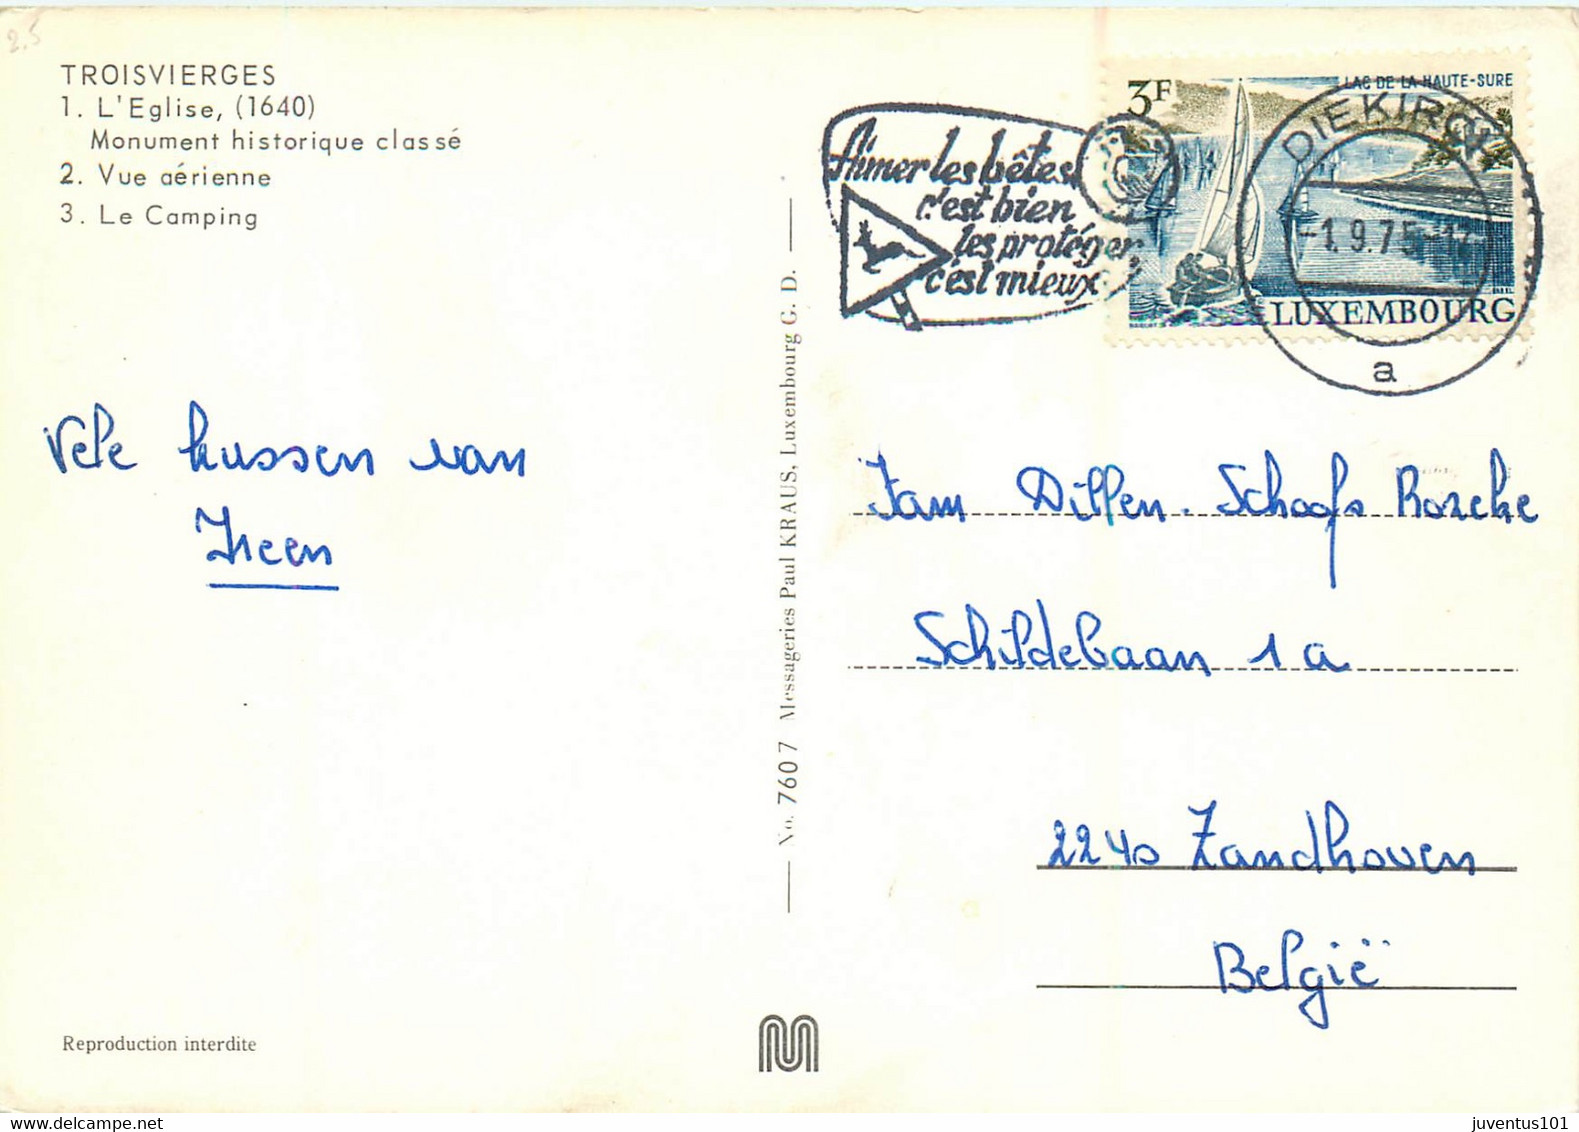 2.5
TROISVIERGES
1. L'Eglise, (1640)
Monument historique classé
2. Vue aérienne
3. Le Camping
Aimer les bêtes
c'est bien
les protéger
c'est mieux
3F
LAC DE LA HAUTE-SURE
LUXEMBOURG
DIEKIRCH
-1.9.75-
a
Vele kussen van
Ireen
No. 7607 Messageries Paul KRAUS, Luxembourg G. D.
Fam Dillen-Schoofs
Schildebaan 1a
2240 Zandhoven
België
Reproduction interdite
juventus101